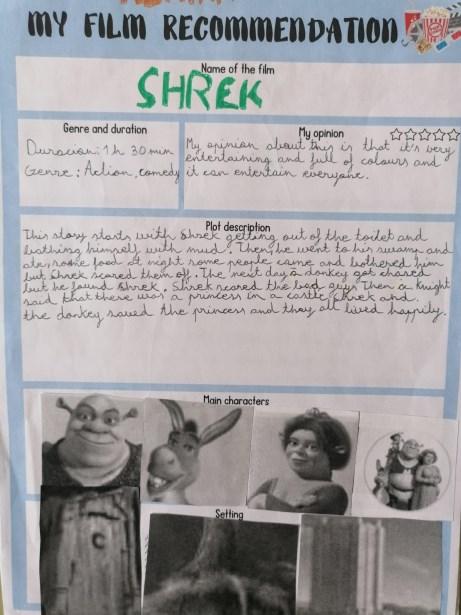 MY FILM RECOMMENDATION
Name of the film
SHREK
Genre and duration
Duracion: 1h 30 min
Genre: Action, comedy
My opinion
My opinion about this is that it's very
entertaining and full of colours and
it can entertain everyone.
Plot description
This story starts with Shrek getting out of the toilet and
bathing himself with mud. Then, he went to his swamp and
ate some food at night some people came and bothered him
but Shrek scared them off. The next day a donkey got chased
but he found Shrek. Shrek scared the bad guys Then a Knight
said that there was a princess in a castle, Shrek and
the donkey saved the princess and they all lived happily.
Main characters
Setting